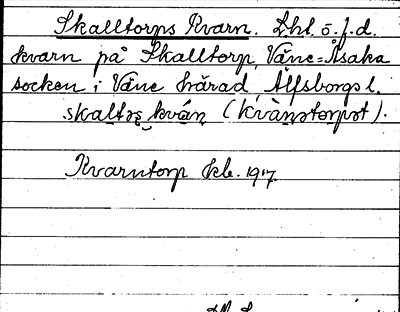 Skalltorps Kvarn. Lht. ö. f. d.
kvarn på Skalltorp, Väne-Åsaka
socken i Väne härad, Älfsborgs l.
skaltɔs kván (kvànstɔrpət).
Kvarntorp Ekb. 1917.